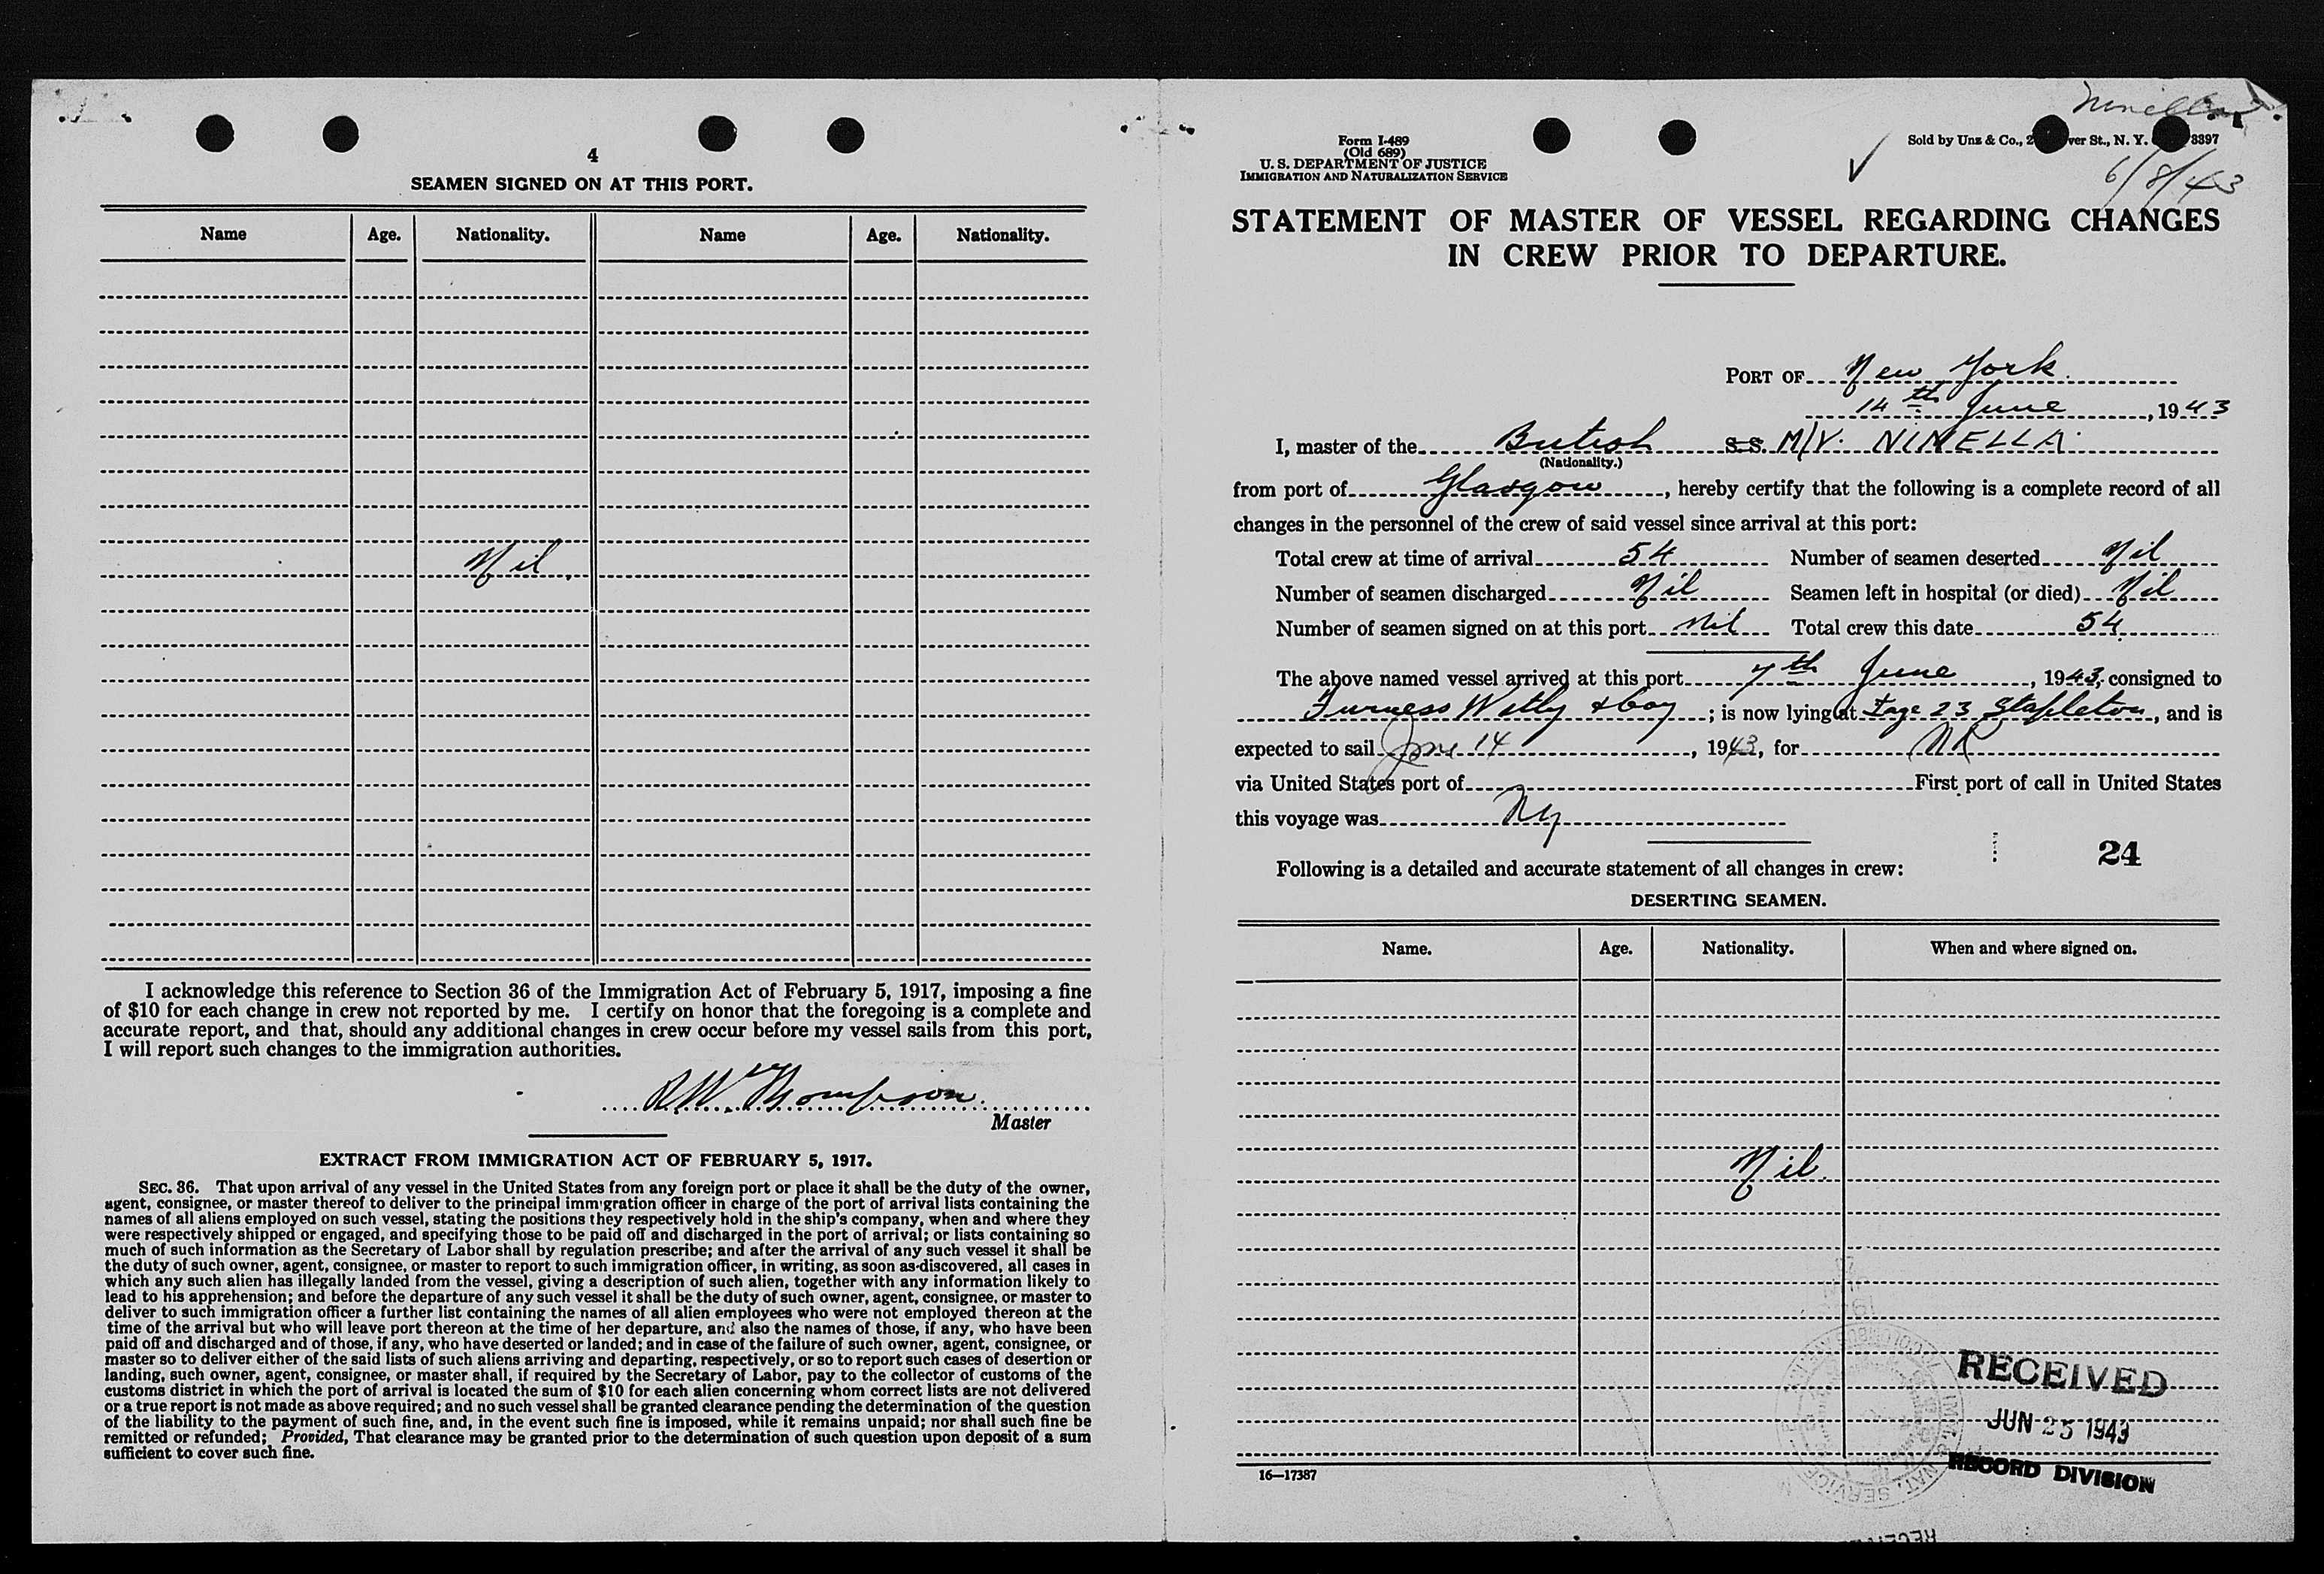 4
SEAMEN SIGNED ON AT THIS PORT.
Name Age. Nationality. Name Age. Nationality.
Nil
I acknowledge this reference to Section 36 of the Immigration Act of February 5, 1917, imposing a fine
of $10 for each change in crew not reported by me. I certify on honor that the foregoing is a complete and
accurate report, and that, should any additional changes in crew occur before my vessel sails from this port,
I will report such changes to the immigration authorities.
Thompson
Master
EXTRACT FROM IMMIGRATION ACT OF FEBRUARY 5, 1917.
SEC. 36. That upon arrival of any vessel in the United States from any foreign port or place it shall be the duty of the owner,
agent, consignee, or master thereof to deliver to the principal immigration officer in charge of the port of arrival lists containing the
names of all aliens employed on such vessel, stating the positions they respectively hold in the ship's company, when and where they
were respectively shipped or engaged, and specifying those to be paid off and discharged in the port of arrival; or lists containing so
much of such information as the Secretary of Labor shall by regulation prescribe; and after the arrival of any such vessel it shall be
the duty of such owner, agent, consignee, or master to report to such immigration officer, in writing, as soon as discovered, all cases in
which any such alien has illegally landed from the vessel, giving a description of such alien, together with any information likely to
lead to his apprehension; and before the departure of any such vessel it shall be the duty of such owner, agent, consignee, or master to
deliver to such immigration officer a further list containing the names of all alien employees who were not employed thereon at the
time of the arrival but who will leave port thereon at the time of her departure, and also the names of those, if any, who have been
paid off and discharged and of those, if any, who have deserted or landed; and in case of the failure of such owner, agent, consignee, or
master so to deliver either of the said lists of such aliens arriving and departing, respectively, or so to report such cases of desertion or
landing, such owner, agent, consignee, or master shall, if required by the Secretary of Labor, pay to the collector of customs of the
customs district in which the port of arrival is located the sum of $10 for each alien concerning whom correct lists are not delivered
or a true report is not made as above required; and no such vessel shall be granted clearance pending the determination of the question
of the liability to the payment of such fine, and, in the event such fine is imposed, while it remains unpaid; nor shall such fine be
remitted or refunded; Provided, That clearance may be granted prior to the determination of such question upon deposit of a sum
sufficient to cover such fine.
Ninella
Form I-489
(Old 689)
U. S. DEPARTMENT OF JUSTICE
IMMIGRATION AND NATURALIZATION SERVICE
Sold by Unz & Co., 2 ver St., N. Y. 8397
6/8/43
STATEMENT OF MASTER OF VESSEL REGARDING CHANGES
IN CREW PRIOR TO DEPARTURE.
PORT OF New York
14th June, 1943
I, master of the British S.S. M/V. NINELLA
(Nationality.)
from port of Glasgow, hereby certify that the following is a complete record of all
changes in the personnel of the crew of said vessel since arrival at this port:
Total crew at time of arrival 54 Number of seamen deserted Nil
Number of seamen discharged Nil Seamen left in hospital (or died) Nil
Number of seamen signed on at this port Nil Total crew this date 54
The above named vessel arrived at this port 7th June, 1943, consigned to
Furness Withy & Coy; is now lying at 23 Stapleton, and is
expected to sail June 14, 1943, for
via United States port of First port of call in United States
this voyage was NY
24
Following is a detailed and accurate statement of all changes in crew:
DESERTING SEAMEN.
Name. Age. Nationality. When and where signed on.
Nil.
RECEIVED
JUN 25 1943
RECORD DIVISION
16—17387